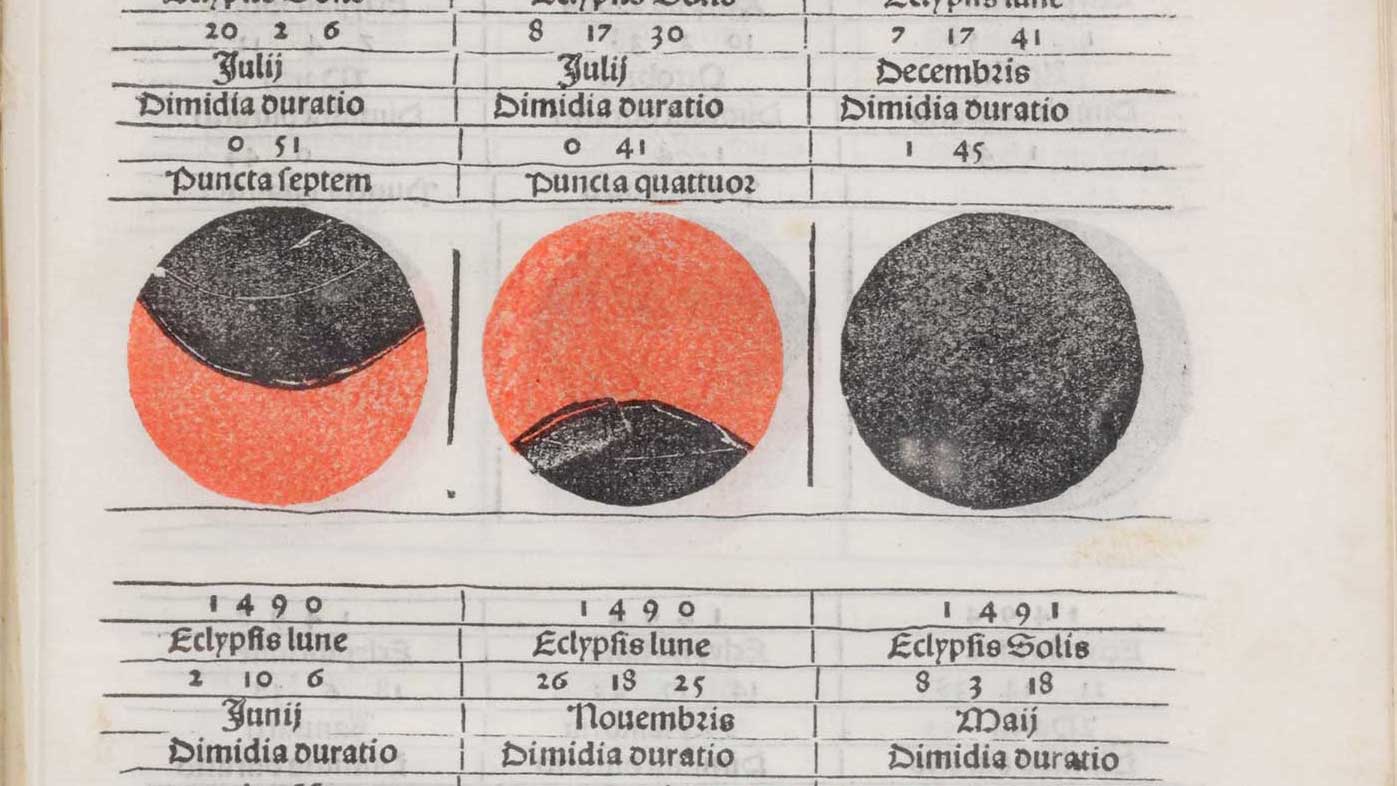 Eclypſis Solis Eclypſis Solis Eclypſis lune
20 2 6 8 17 30 7 17 41
Julij Julij Decembris
Dimidia duratio Dimidia duratio Dimidia duratio
0 51 0 41 1 45
Puncta ſeptem Puncta quattuor
1490 1490 1491
Eclypſis lune Eclypſis lune Eclypſis Solis
2 10 6 26 18 25 8 3 18
Junij Nouembris Maij
Dimidia duratio Dimidia duratio Dimidia duratio